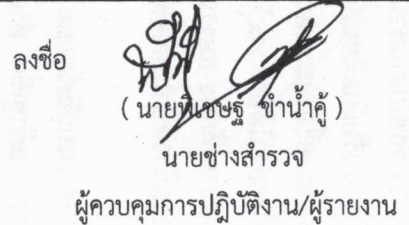 ลงชื่อ
( นายพิเชษฐ ขำน้ำคู้ )
นายช่างสำรวจ
ผู้ควบคุมการปฏิบัติงาน/ผู้รายงาน